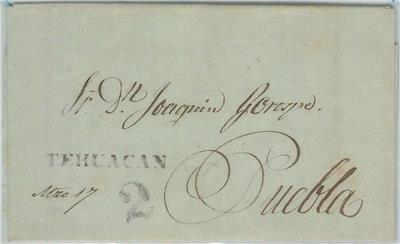 Sr. Dn. Joaquin Gorospe.
TEHUACAN
Puebla
Mzo 17
2